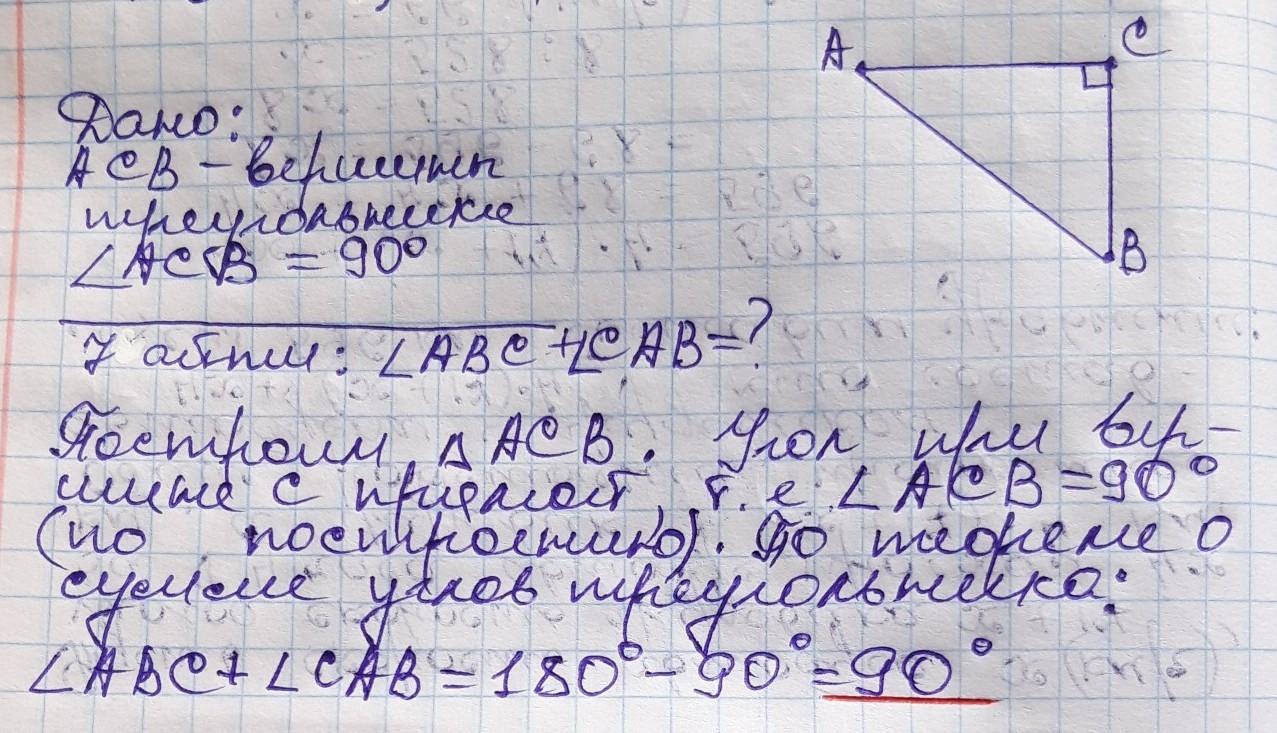 A
C
B
Дано:
ACB – вершины
треугольника
∠ACB = 90°
Найти: ∠ABC + ∠CAB = ?
Построим △ ACB. Угол при вер-
шине C прямой, т. е. ∠ ACB = 90°
(по построению). По теореме о
сумме углов треугольника:
∠ABC + ∠CAB = 180° – 90° = 90°